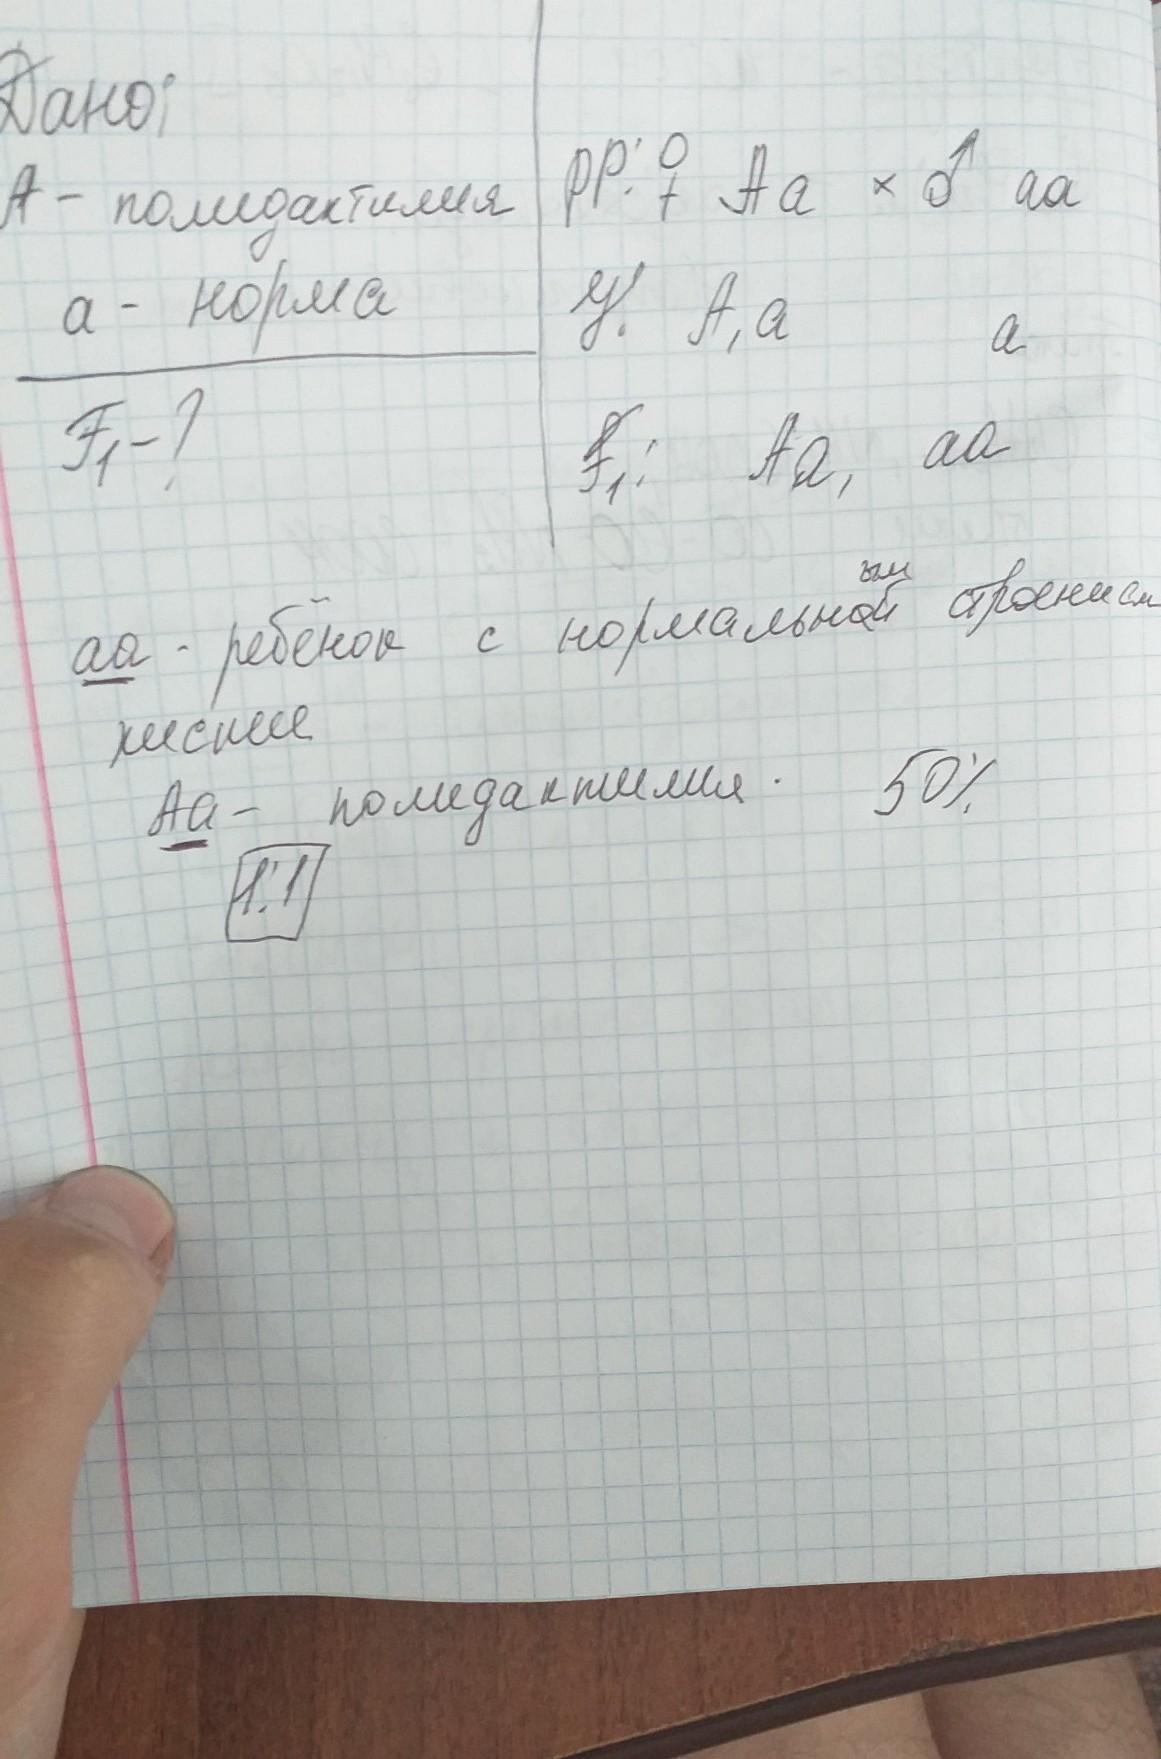 Дано:
A - полидактилия
a - норма
F1 - ?
PP: ♀ Aa × ♂ aa
g: A, a a
F1: Aa, aa
aa - ребёнок с нормальной ым строением
кисти
Aa - полидактилия. 50%
1:1